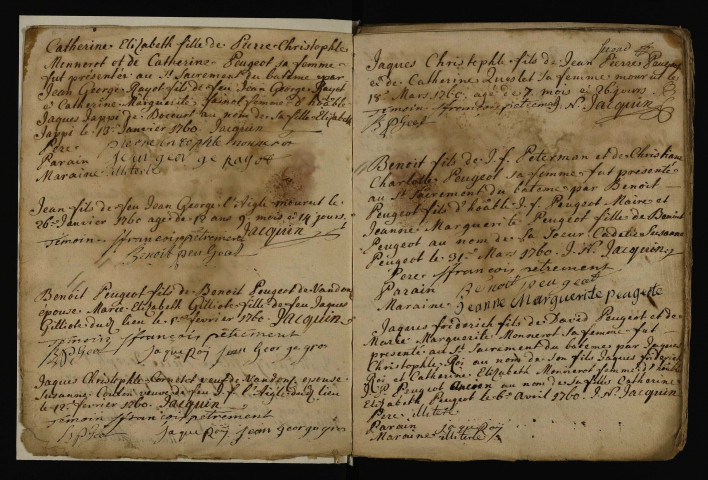 Catherine Elizabeth fille de Pierre Christophle
Mennerot et de Catherine Peugeot sa femme
fut présentée au St Sacrement du batême par
Jean George Rayot fils de feu Jean George Rayot
et Catherine Marguerite femme d'hoble
Jaques Jappi de Bocourt au nom de sa fille Elizabeth
Jappi le 13e Janvier 1760. Jacquin
Pere
Parain Jean george Rayot
Maraine illiterée
Jean fils de feu Jean George l'Aigle mourut le
26e Janvier 1760 agé de ans 9 mois et 14 jours.
témoin ffrançois petrement Jacquin
Benoit peugeot
Benoît Peugeot fils de Benoit Peugeot de Vandonc
epouse Marie Elizabeth Gilliote fille de feu Jaques
Gilliote dudt lieu le fevrier 1760. Jacquin
témoins ffrançois petrement
Jaque Roy Jean George gros
Jaques Christophle veuf de Vandonc epouse
Susanne veuve de feu J. f. l'Aigle dudt lieu
le fevrier 1760. Jacquin
témoin ffrançois petrement
Jaque Roy Jean George
Jaques Christophle fils de Jean Pierre Peugeot
et de Catherine Quelet sa femme mourut le
18e Mars 1760. agé de 7 mois et 26 jours.
témoin ffrançois petrement J. N. Jacquin
Benoît fils de J. f. Peterman et de Christiane
Charlotte Peugeot sa femme fut présenté
au St Sacrement du batême par Benoit
Peugeot fils d'hoble J. f. Peugeot Maire et
Jeanne Marguerite Peugeot fille de Benoit
Peugeot au nom de sa Soeur Cadette Susanne
Peugeot le 31e Mars 1760. J. N. Jacquin
Pere ffrançois petrement
Parain Benoit peugeot
Maraine Jeanne Marguerite peugette
Jaques friderich fils de David Peugeot et de
Marie Marguerite Mennerot sa femme fut
présenté au St Sacrement du batême par Jaques
Christophle Roi au nom de son fils Jaques friderich
Roi et Catherine Elizabeth Mennerot femme d'hoble
Peugeot Ancien au nom de sa fille Catherine
Elizabeth Peugeot le 6e Avril 1760. J. N. Jacquin
Pere illiteré
Parain Jaque Roy
Maraine illiterée